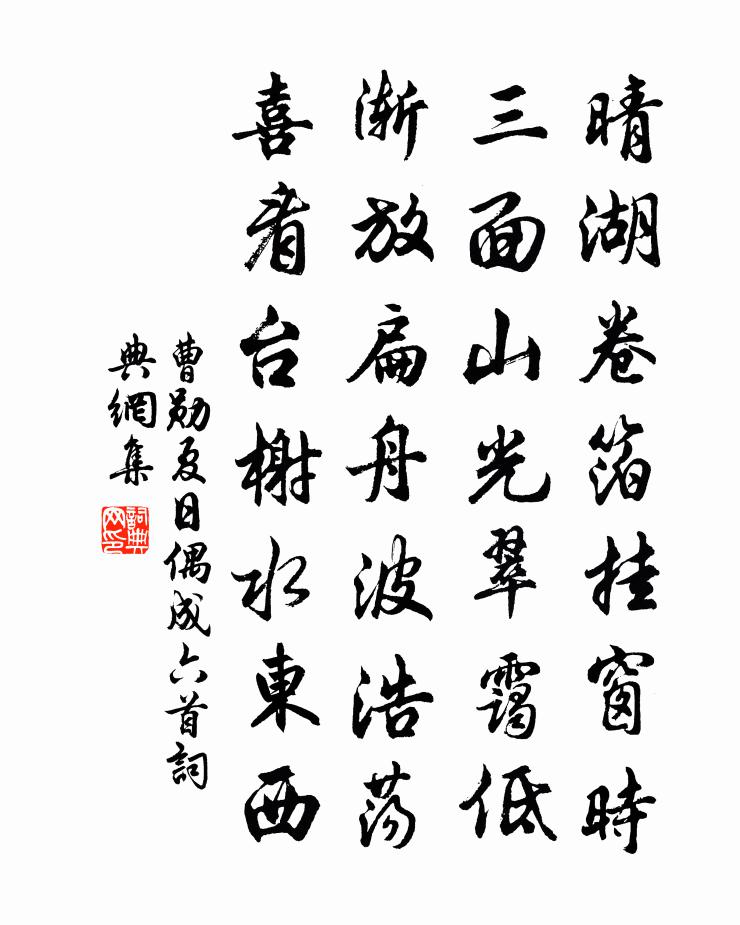 晴湖卷箔挂窗時
三面山光翠靄低
渐放扁舟波浩荡
喜看台榭水東西
曹勋夏日偶成六首詞
典網集
詞典网印